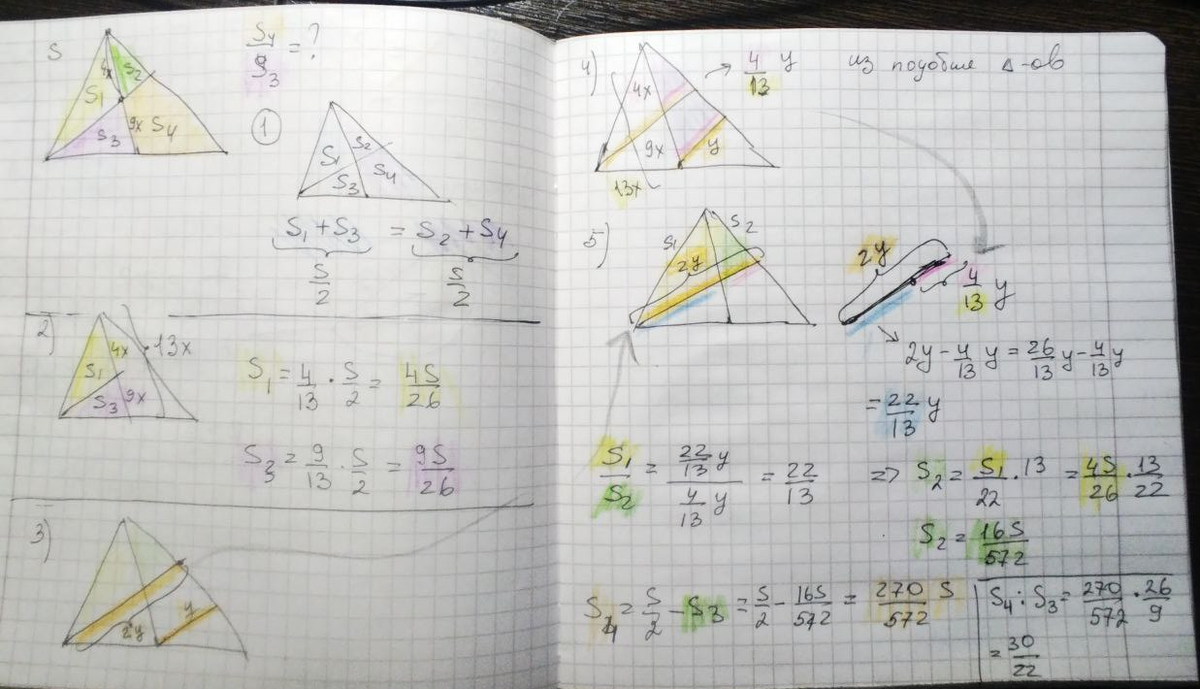 S
S₄/S₃ = ?
4x S₂
S₁
S₃ 9x S₄
1
S₁ S₂
S₃ S₄
S₁ + S₃ = S₂ + S₄
S/2 S/2
2)
4x 13x
S₁
S₃ 9x
S₁ = 4/13 · S/2 = 4S/26
S₃ = 9/13 · S/2 = 9S/26
3)
y
2y
4) 4/13 y из подобия Δ-ов
4x
9x y
13x
5)
S₁ S₂
2y
2y
4/13 y
2y - 4/13 y = 26/13 y - 4/13 y
= 22/13 y
S₁/S₂ = 22/13 y / 4/13 y = 22/13 => S₂ = S₁/22 · 13 = 4S/26 · 13/22
S₂ = 16S/572
S₄ = S/2 - S₃ = S/2 - 16S/572 = 270/572 S
S₄ : S₃ = 270/572 · 26/9
= 30/22